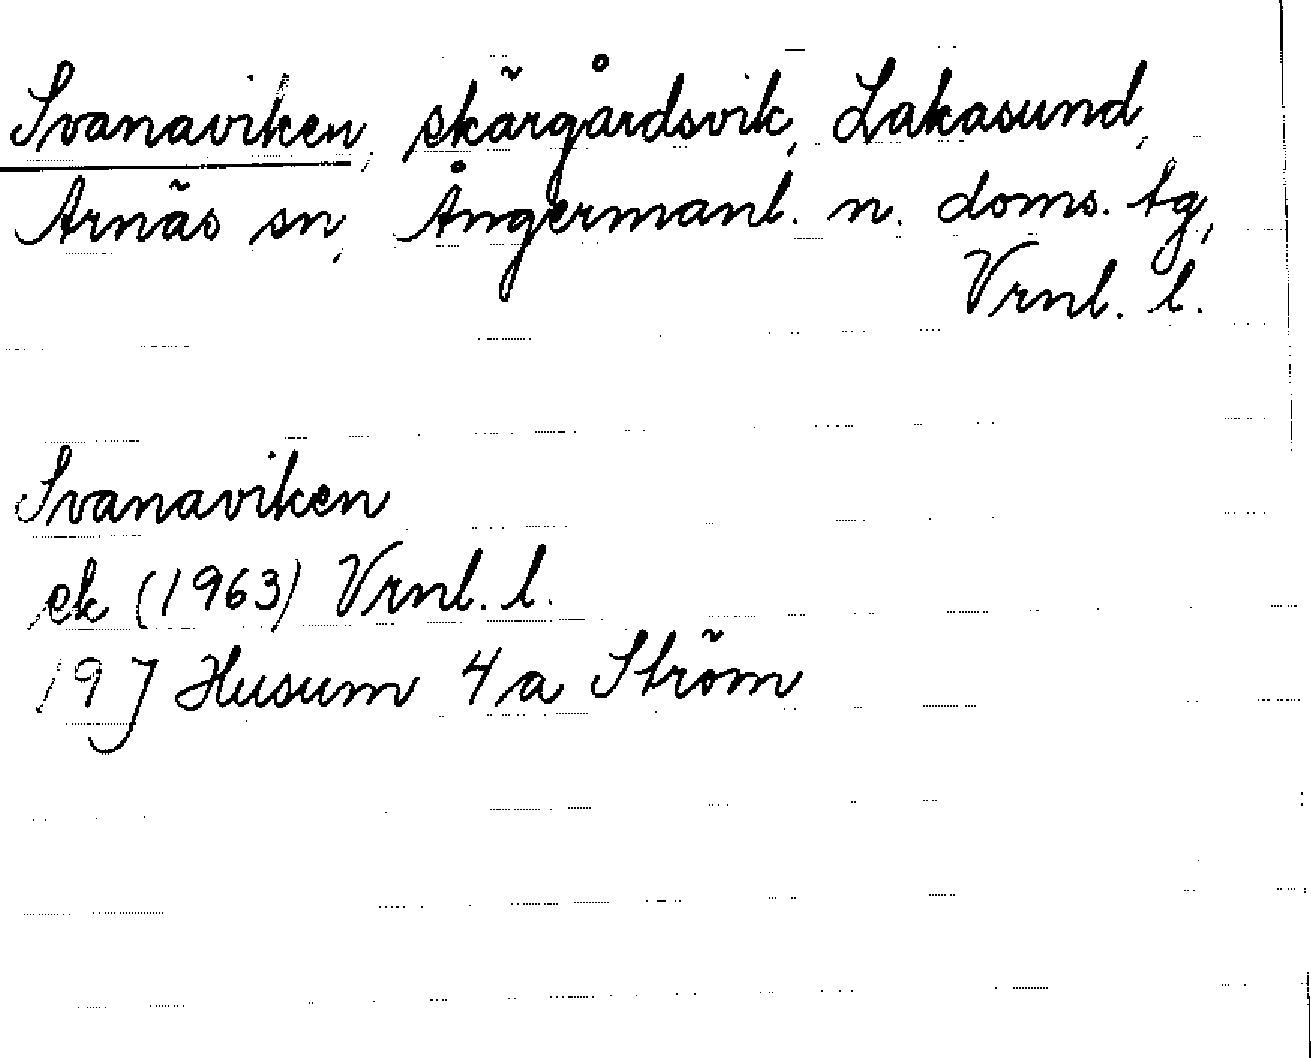 Svanaviken, skärgårdsvik, Lakasund,
Arnäs sn, Ångermanl. n. doms. tg,
Vrnl. l.
Svanaviken
ek (1963) Vrnl. l.
19 J Husum 4 a Ström